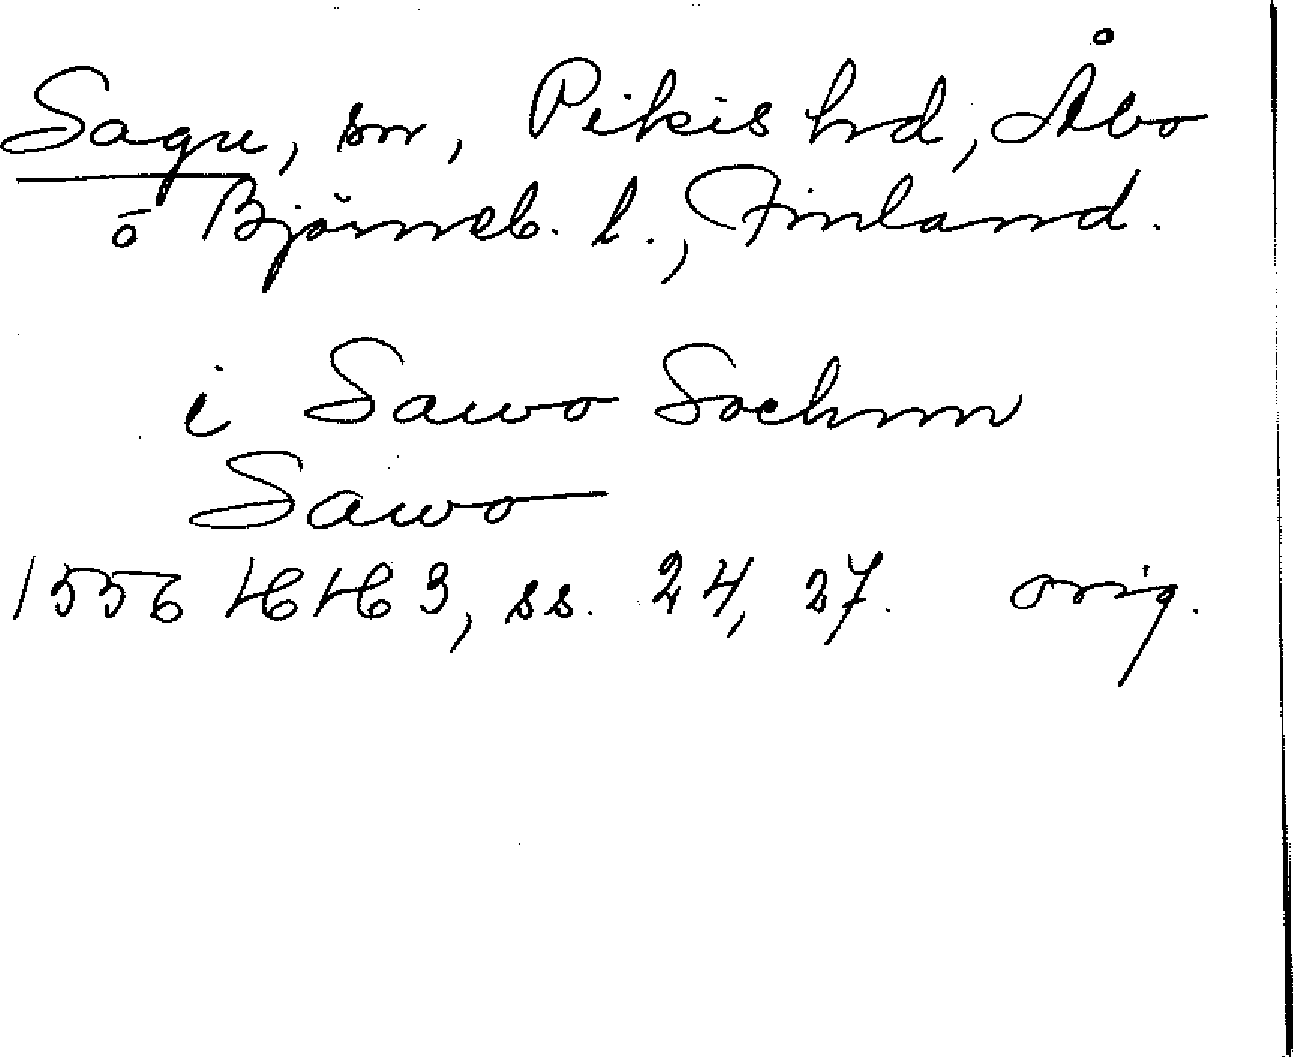 Sagu, sn, Pikis hd, Åbo
o Björneb. l., Finland.
i Sawo Sochnn
Sawo
1556 HH 3, ss. 24, 27. orig.